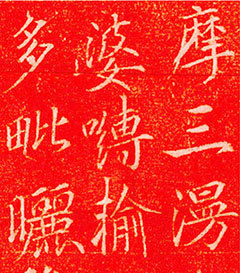 摩三湯
婆嚩揄
多毗曬